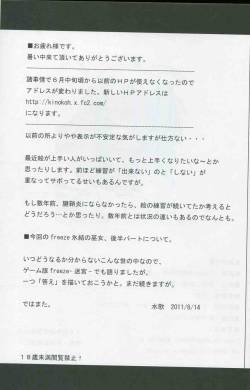 ■お疲れ様です。
暑い中来て頂いてありがとうございます。
諸事情で６月中旬頃から以前のＨＰが使えなくなったので
アドレスが変わりました。新しいＨＰアドレスは
http://kinokoh.x.fc2.com/
になります。
以前の所よりやや表示が不安定な気がしますが仕方ない・・・
最近絵が上手い人がいっぱいいて、もっと上手くなりたいな～とか
思ったりします。前ほど練習が「出来ない」のと「しない」が
重なってサボってるせいもあるんですが。
もし数年前、腱鞘炎にならなかったら、絵の練習が続いてたか考えると
どうだろう…とか思ったり。数年前とは状況の違いもあるのでなんとも。
■今回のfreeze氷結の巫女、後半パートについて。
いつどうなるか分からないこんな世の中なので、
ゲーム版freeze-迷宮-でも語りましたが、
一つ「答え」を描いておこうかと。まだ続きますが。
ではまた。
水歌 2011/8/14
１８歳未満閲覧禁止！